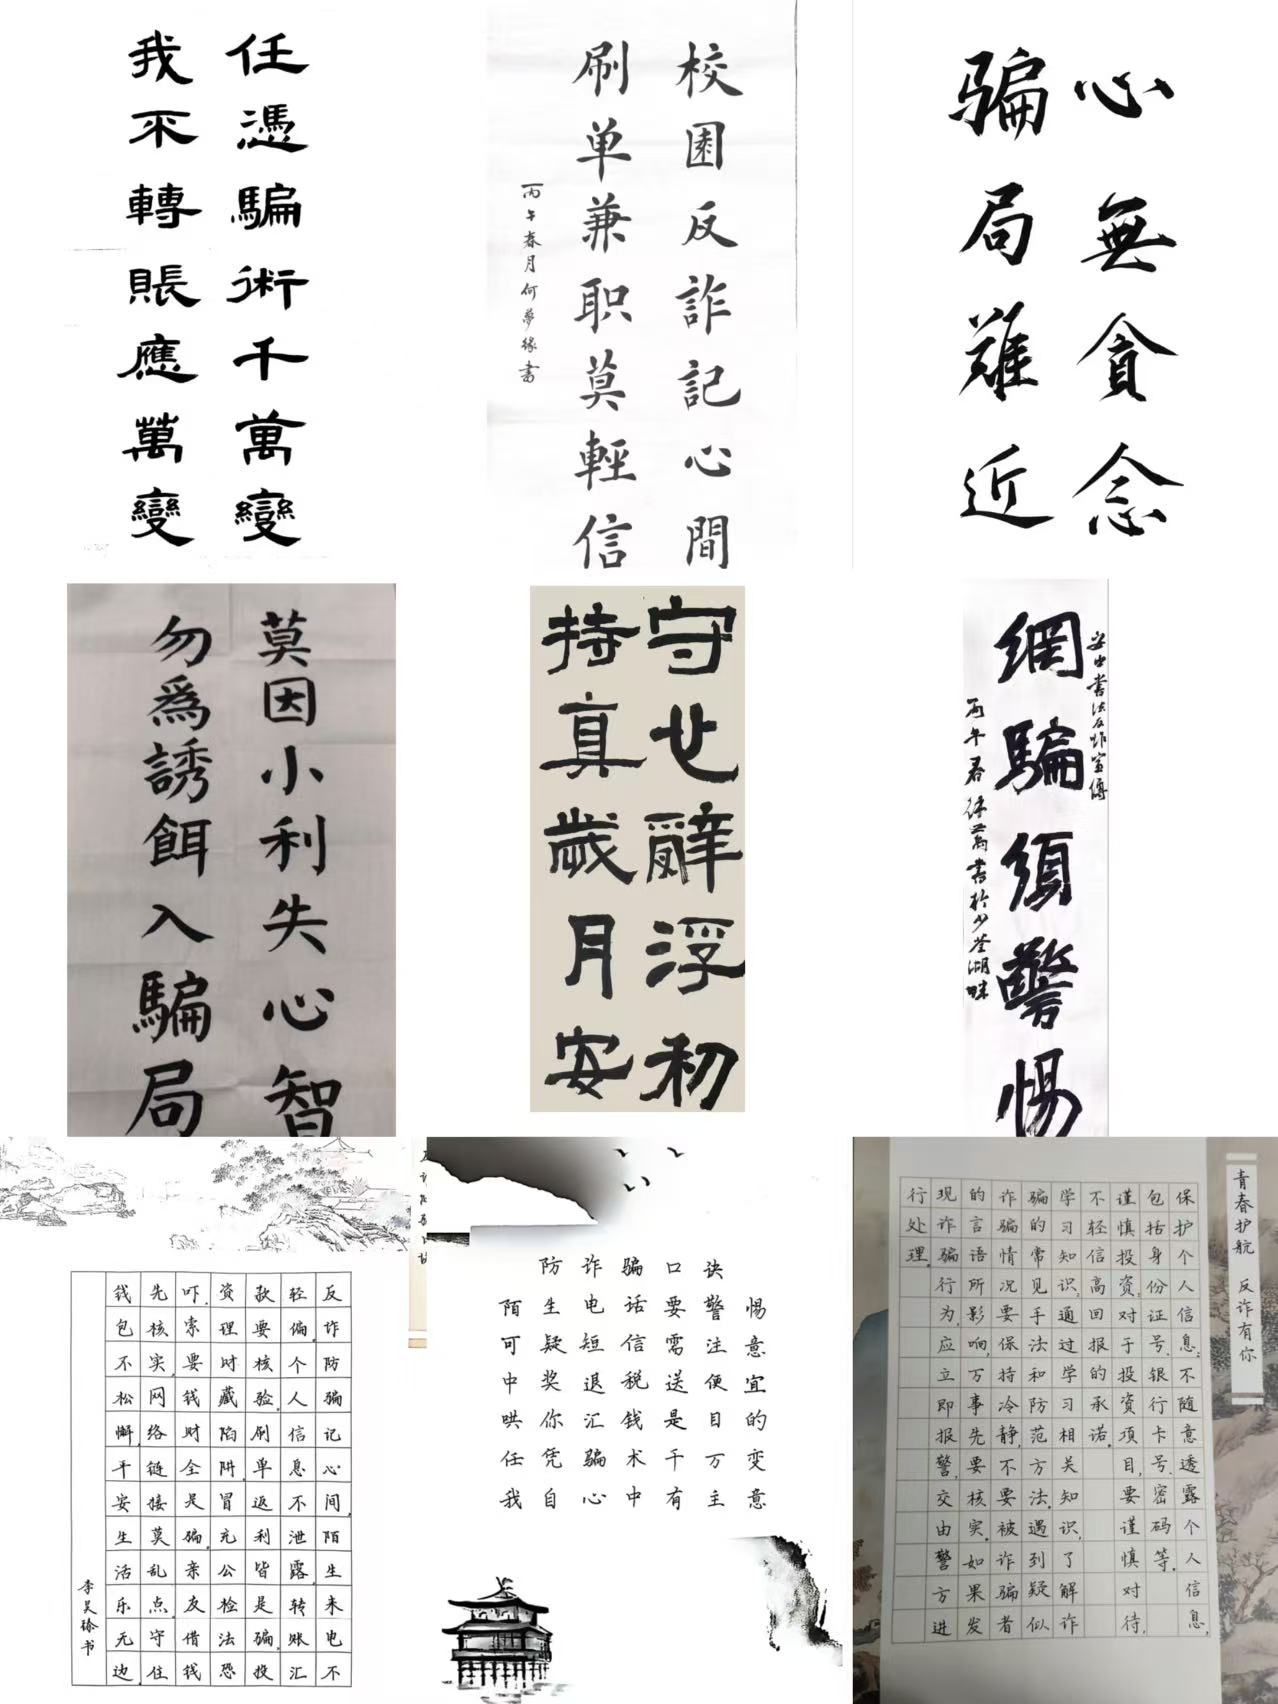 任憑騙術千萬變
我不轉賬應萬變
校園反詐記心間
刷单兼职莫輕信
丙午春月何夢缘書
心無貪念
骗局難近
莫因小利失心智
勿為誘餌入騙局
守心辭浮初
持真歲月安
安中書法反诈宣傳
網騙須警惕
丙午春 書於少荃湖畔
反诈防骗记心间,陌生来电不
轻偏,个人信息不泄露,转账汇
款要核验。刷单返利皆是骗,投
资理财藏陷阱。冒充公检法恐
吓,索要钱财全是骗,亲友借钱
先核实。网络链接莫乱点。守住
钱包不松懈,平安生活乐无边。
李昊瑜书
防诈骗口诀
陌生电话要警惕
可疑短信需注意
中奖退税送便宜
哄你汇钱是目的
任凭骗术千万变
我自心中有主意
青春护航 反诈有你
保护个人信息:不随意透露个人信息,
包括身份证号、银行卡号、密码等。
谨慎投资:对于投资项目,要谨慎对待,
不轻信高回报的承诺。
学习知识:通过学习相关知识,了解诈
骗的常见手法和防范方法。遇到疑似
诈骗情况要保持冷静,不要被诈骗者
的言语所影响,万事先要核实。如果发
现诈骗行为,应立即报警,交由警方进
行处理。